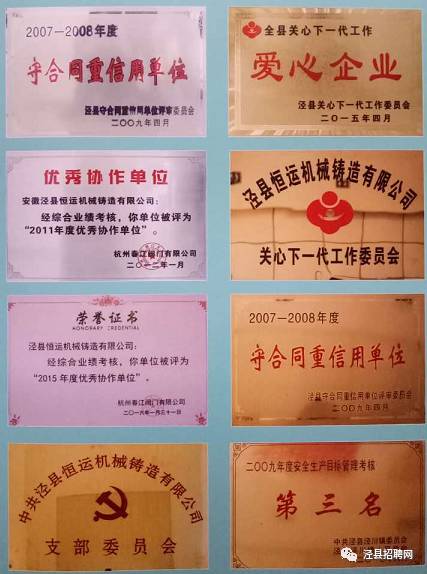 2007—2008年度
守合同重信用单位
泾县守合同重信用单位评审委员会
二〇〇九年四月
全县关心下一代工作
爱心企业
泾县关心下一代工作委员会
二〇一五年四月
优秀协作单位
安徽泾县恒运机械铸造有限公司：
经综合业绩考核，你单位被评为
“2011年度优秀协作单位”。
杭州春江阀门有限公司
二〇一二年一月
泾县恒运机械铸造有限公司
关心下一代工作委员会
荣誉证书
HONORARY CREDENTIAL
泾县恒运机械铸造有限公司：
经综合业绩考核，你单位被评为
“2015年度优秀协作单位”。
杭州春江阀门有限公司
二〇一六年一月三十一日
2007—2008年度
守合同重信用单位
泾县守合同重信用单位评审委员会
二〇〇九年四月
中共泾县恒运机械铸造有限公司
支部委员会
二〇〇九年度安全生产目标管理考核
第三名
中共泾县泾川镇委员会
泾县招聘网